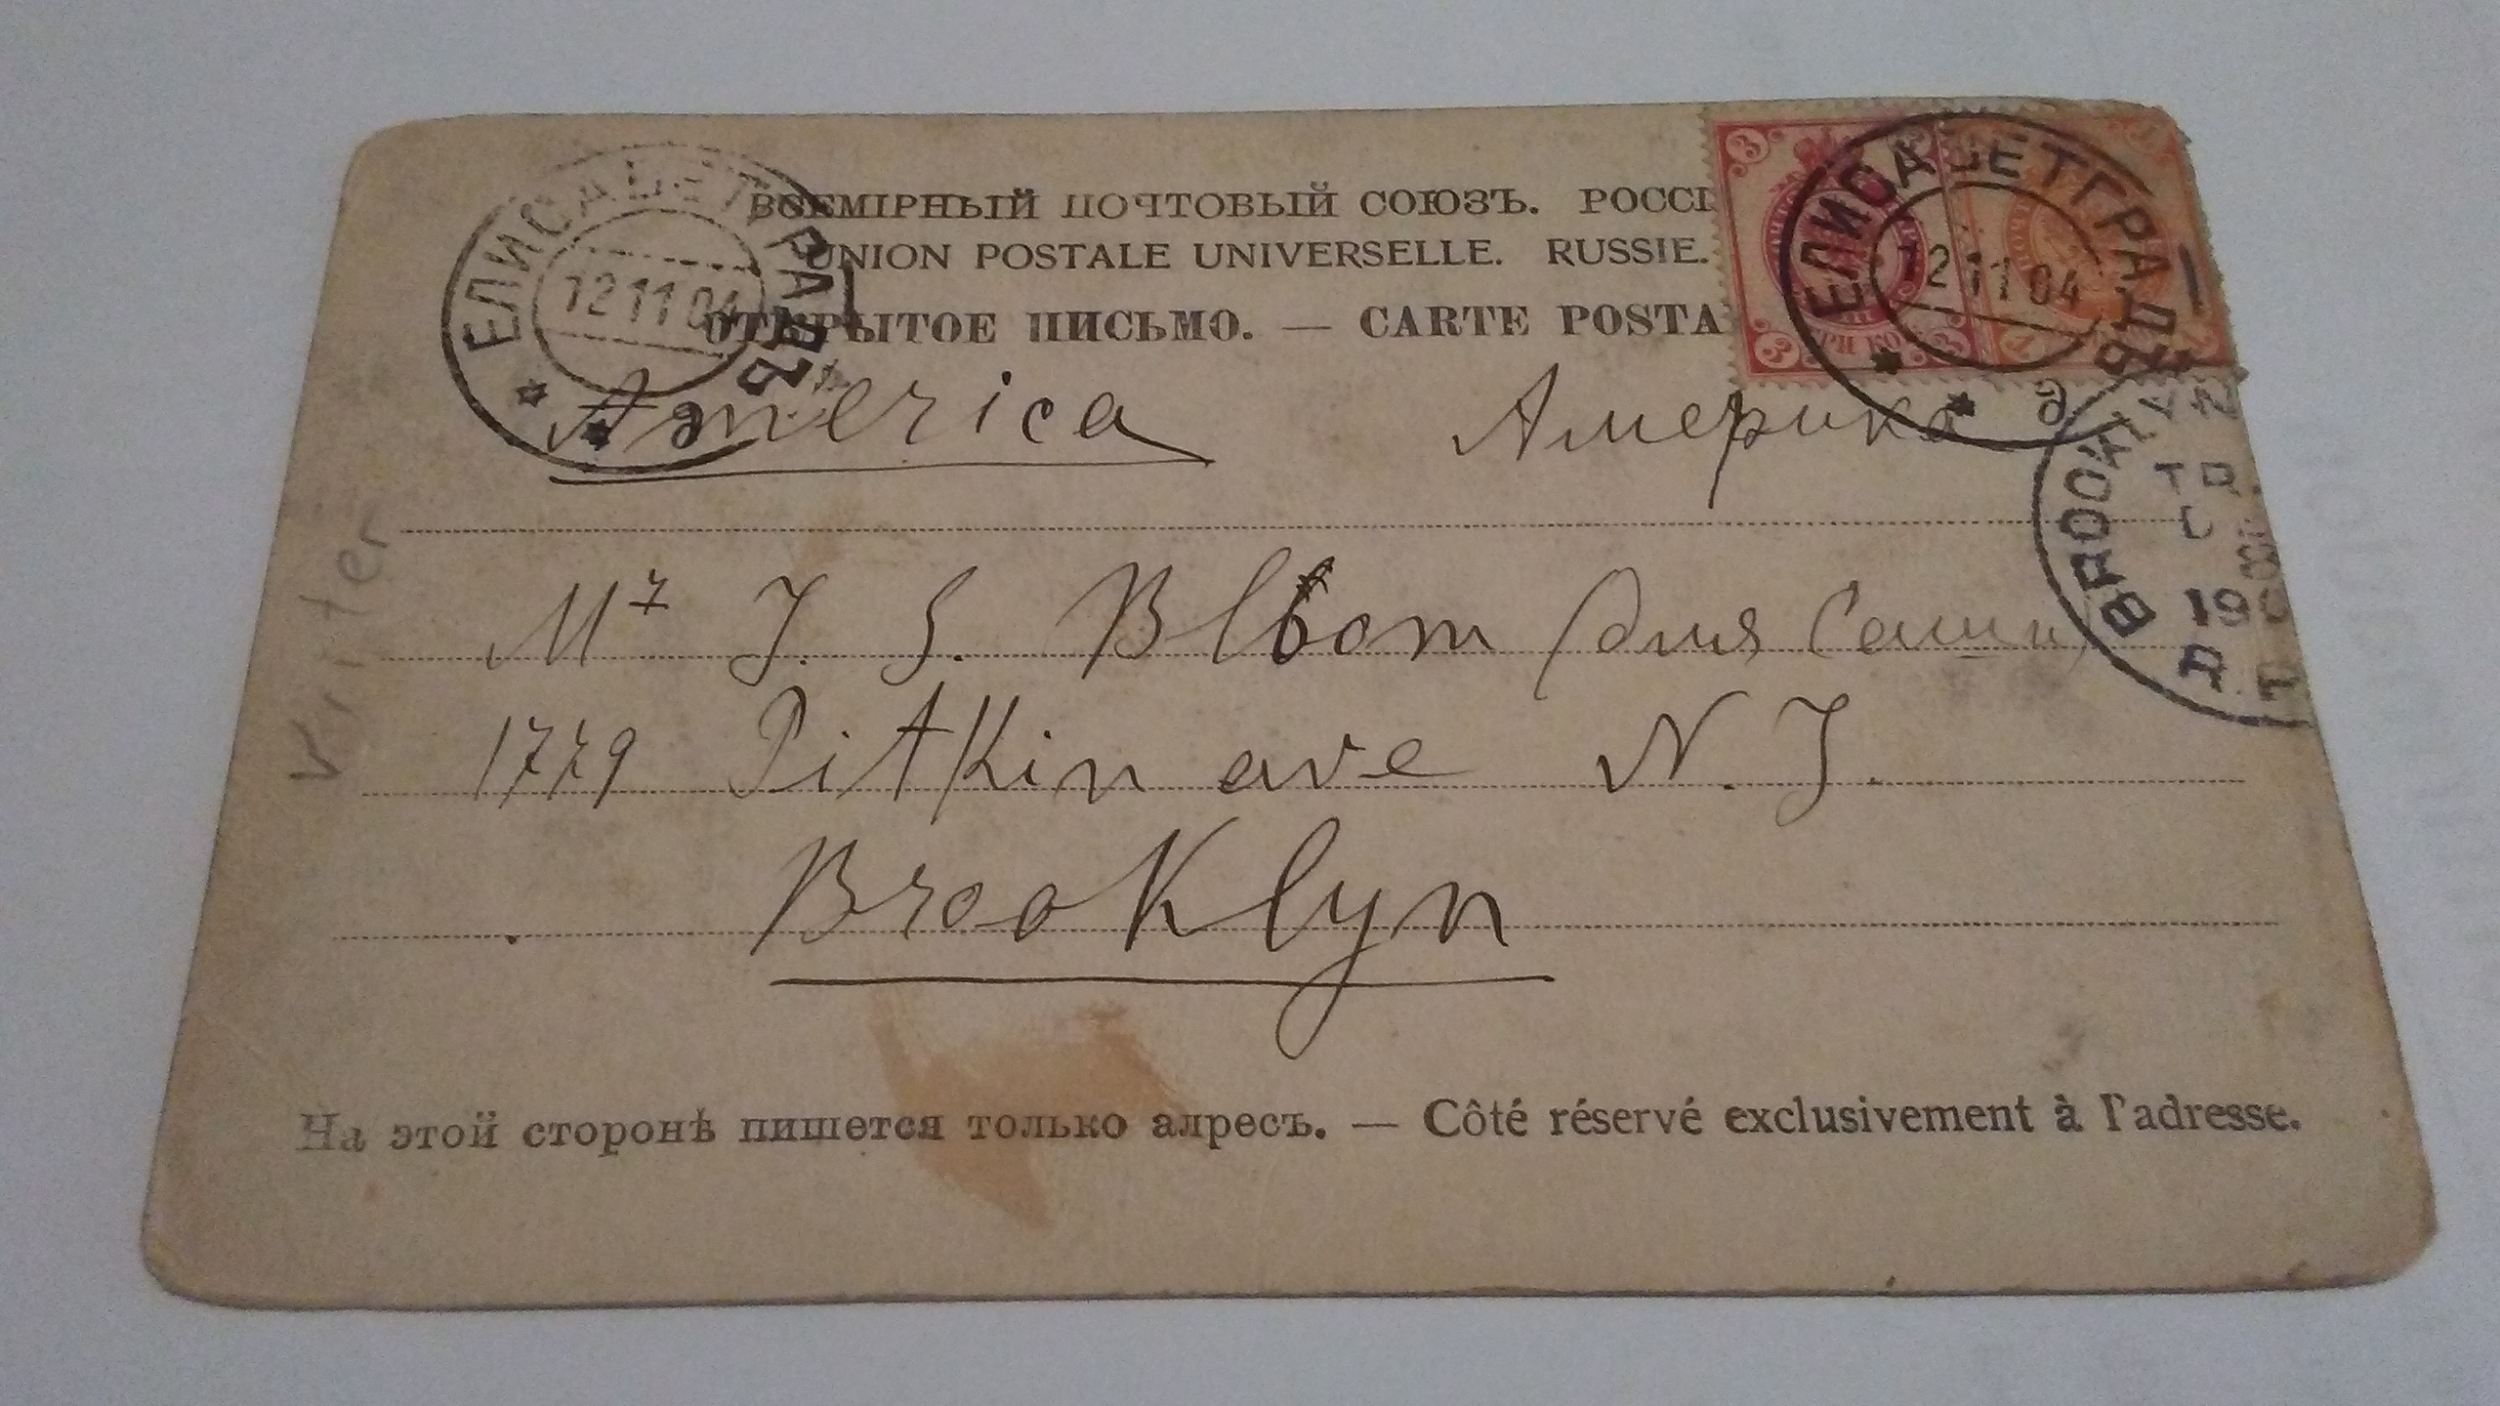 ВСЕМІРНЫЙ ПОЧТОВЫЙ СОЮЗЪ. РОССІ
UNION POSTALE UNIVERSELLE. RUSSIE.
ОТКРЫТОЕ ПИСЬМО. — CARTE POSTA
ЕЛИСАВЕТГРАДЪ
12 11 04
ЕЛИСАВЕТГРАДЪ
12 11 04
America Америка
BROOKLYN
Mr J. S. Blbom (для Саши)
1779 Pitkin ave N. J.
Brooklyn
На этой сторонѣ пишется только адресъ. — Côté réservé exclusivement à l'adresse.